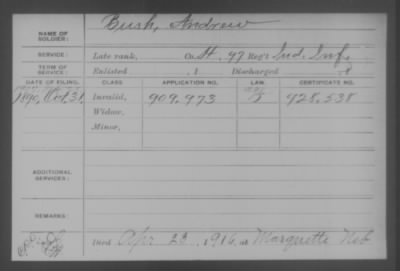 NAME OF SOLDIER: Bush, Andrew
SERVICE: Late rank, Co. H, 97 Reg't Ind. Inf.
TERM OF SERVICE: Enlisted , 1 Discharged , 8
DATE OF FILING. CLASS. APPLICATION NO. LAW. CERTIFICATE NO.
1890, Oct. 31, Invalid, 909.973 928.538
Widow,
Minor,
ADDITIONAL SERVICES:
REMARKS:
Died Apr 23, 1916, at Marquette Neb